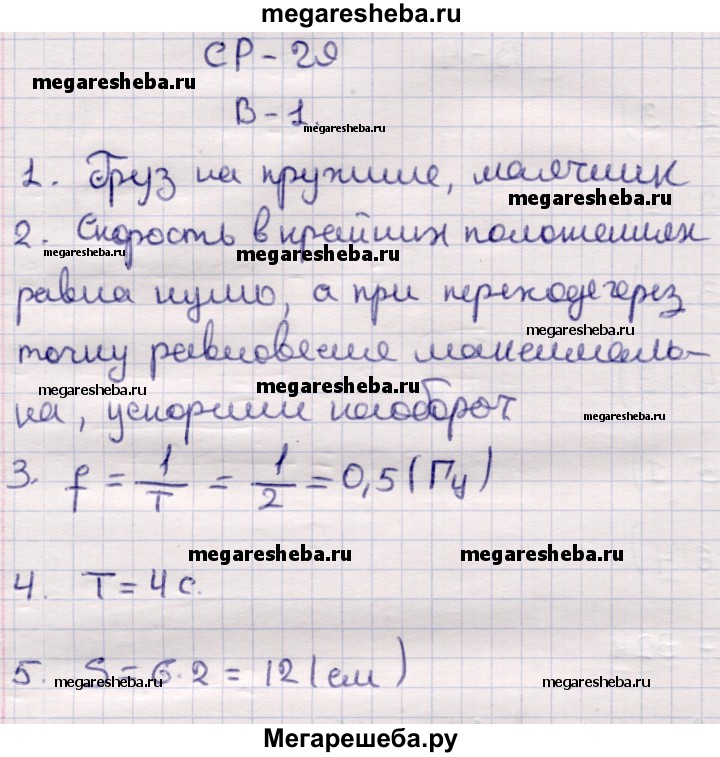 megaresheba.ru
СР-29
megaresheba.ru
В-1.
megaresheba.ru
1. Груз на пружине, маятник
megaresheba.ru
2. Скорость в крайних положениях
megaresheba.ru
megaresheba.ru
равна нулю, а при переходе через
megaresheba.ru
точку равновесие максималь-
megaresheba.ru
megaresheba.ru
на, ускорении наоборот
megaresheba.ru
3. f = 1/T = 1/2 = 0,5 (Гц)
megaresheba.ru
megaresheba.ru
4. T = 4 с.
5. S = 6·2 = 12 (см)
megaresheba.ru
megaresheba.ru
Мегарешеба.ру